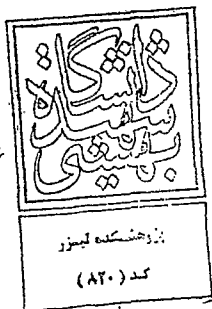 دانشگاه
شهید
بهشتی
پژوهشکده لیزر
کد (۸۲۰)